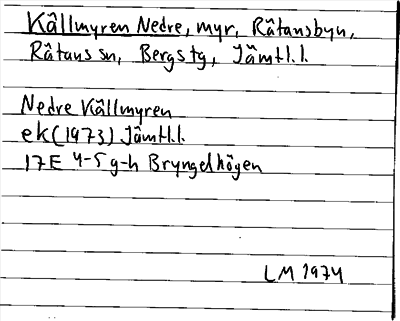 Källmyren Nedre, myr, Råtansbyn,
Råtans sn, Bergs tg, Jämtl.l.
Nedre Källmyren
ek (1973) Jämtl.l.
17E 4-5 g-h Bryngelhögen
LM 1974